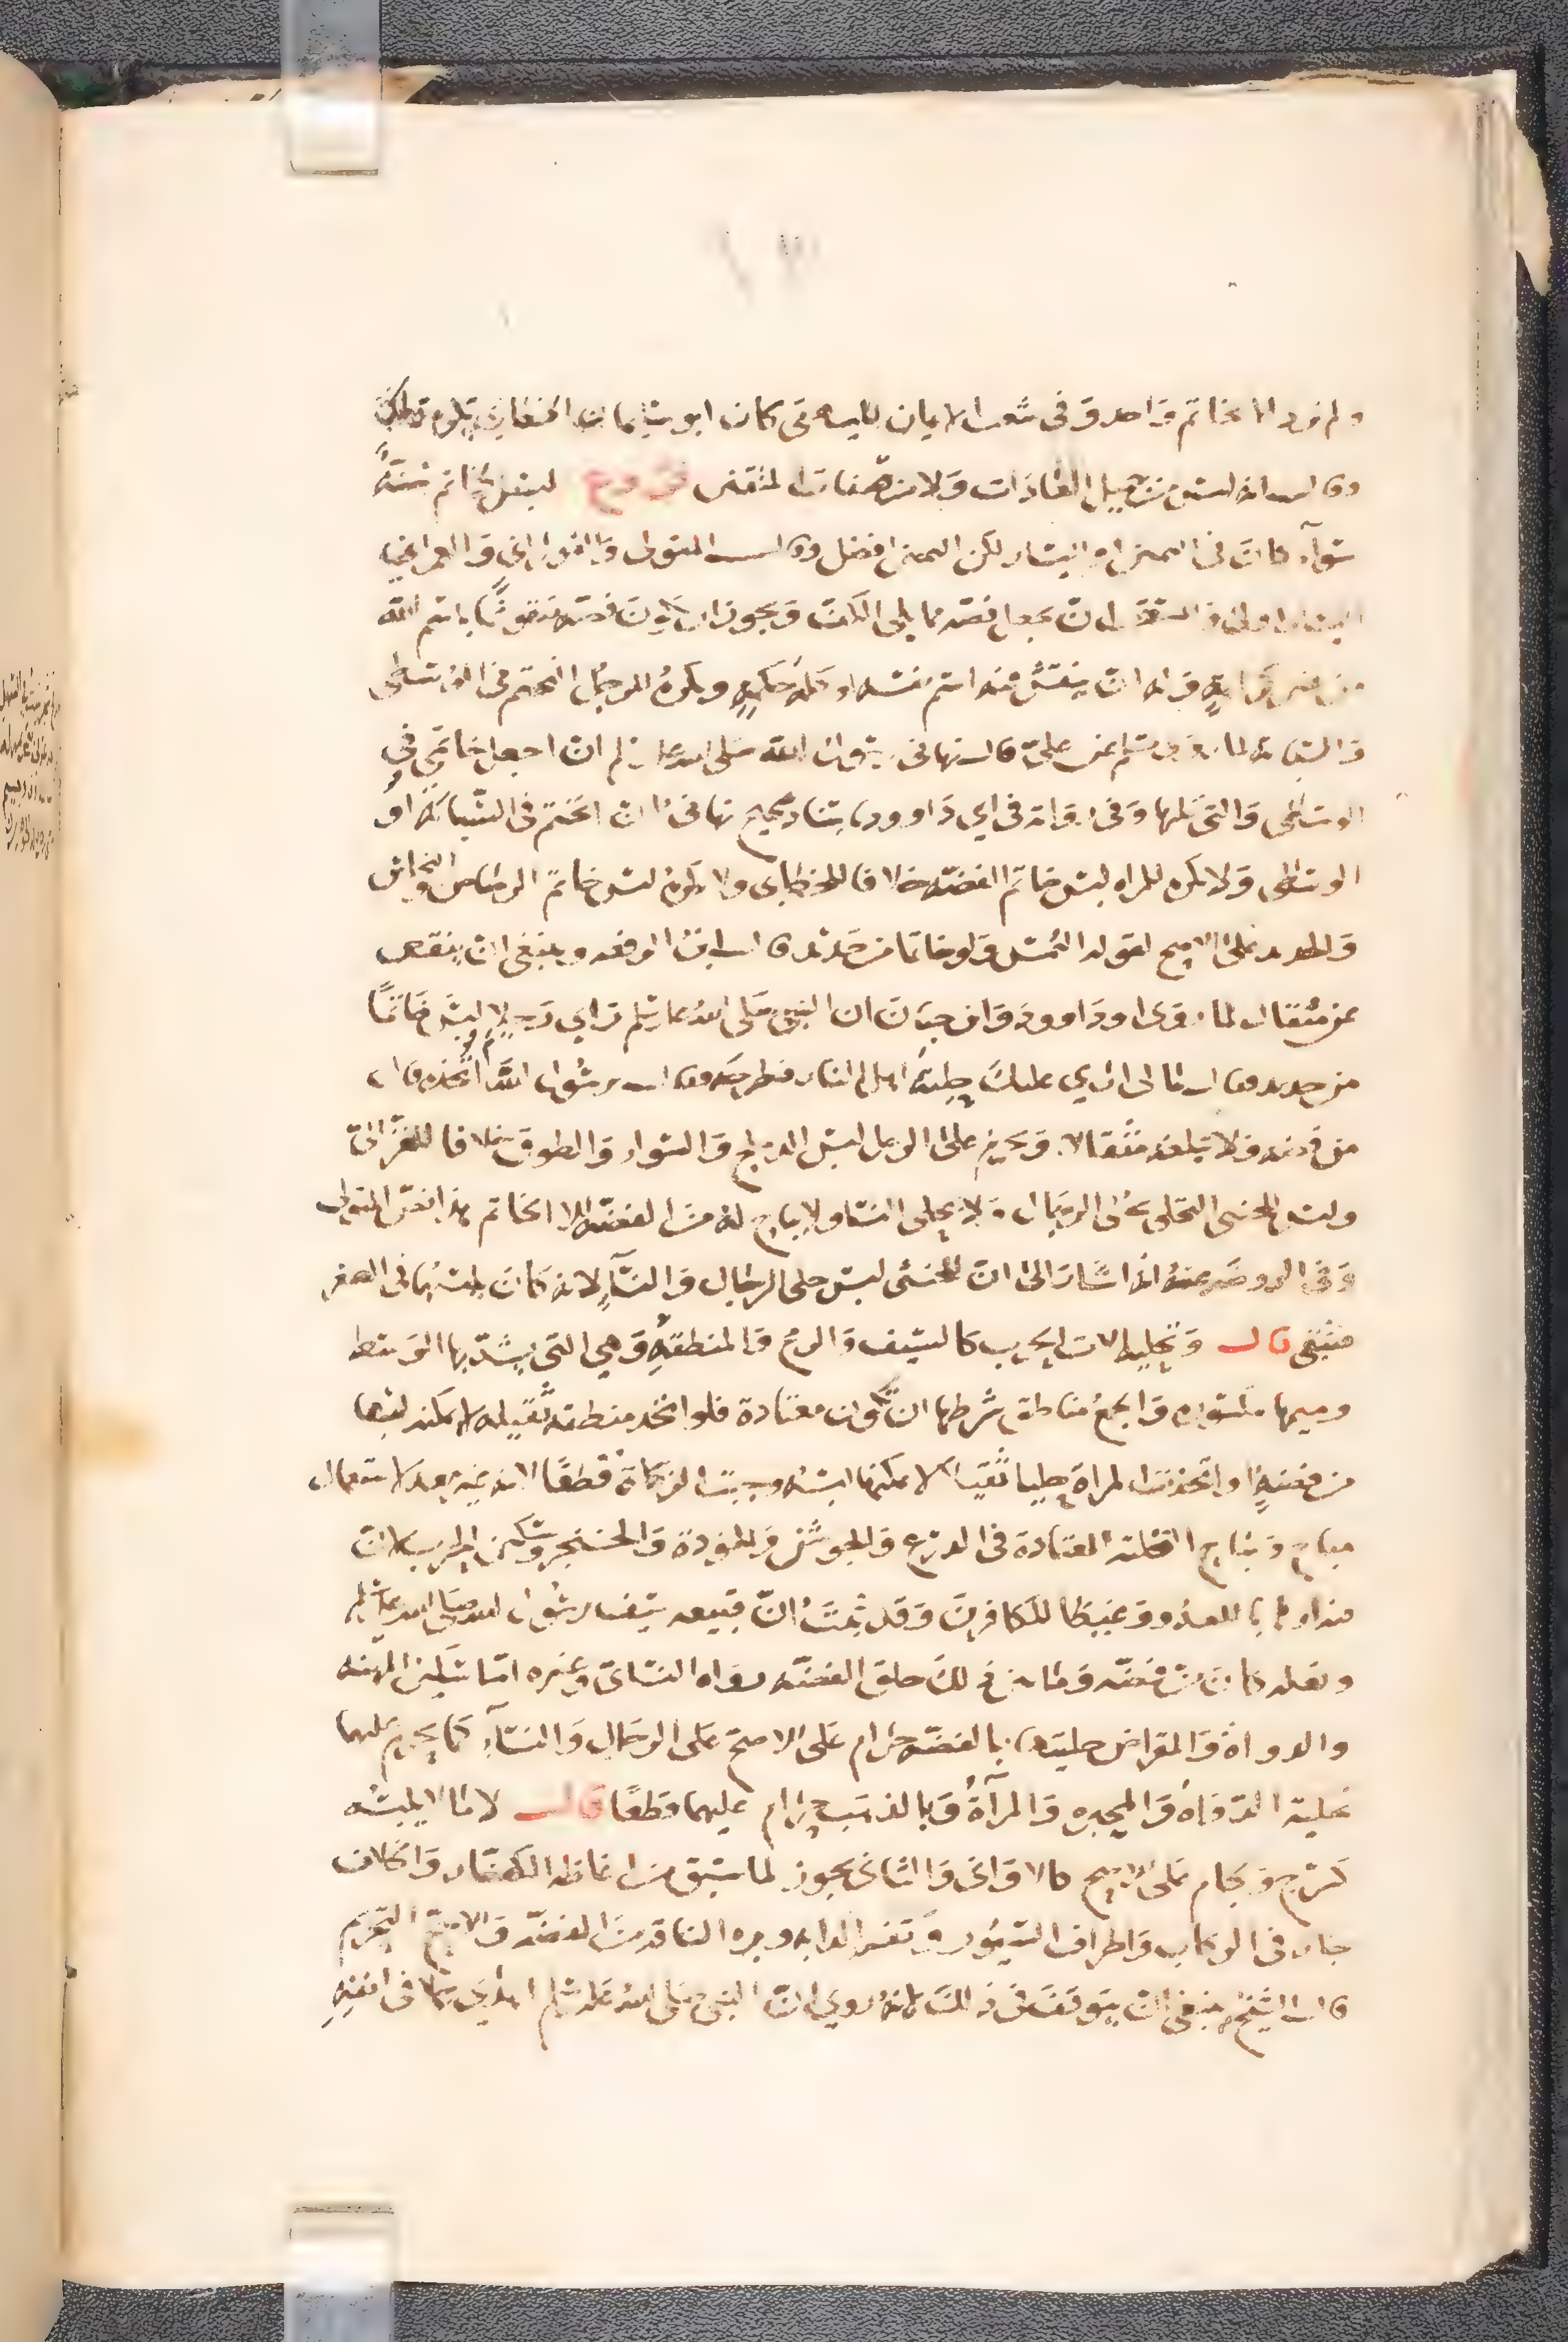 ولم نرد الا بخاتم واحد وفي شعب الايمان للبيهقي كان ابو سليمان الخطابي يكره ذلك
وقال انه ليس من جميل العادات ولا من صفات المتقين فرع لبس الخاتم سنة
سواء كان في اليمين او اليسار لكن اليمين افضل وقال المتولي والفوراني والعمراني
اليسار اولى والسنة ان يجعل فصه مما يلي الكف ويجوز ان يكون فصه منقوشا باسم الله
من غير كراهة وله ان ينقش فيه اسم نفسه او كلمة حكمة ويكره للرجل التختم في الوسطى
والسبابة لما روى مسلم عن علي قال نهاني رسول الله صلى الله عليه وسلم ان اجعل خاتمي في
الوسطى والتي تليها وفي رواية في ابي داوود باسناد صحيح نهاني ان اتختم في السبابة او
الوسطى ولا يكره للمراة لبس خاتم الفضة خلافا للخطابي ولا يكره لبس خاتم الرصاص والنحاس
والحديد على الاصح لقوله التمس ولو خاتما من حديد قال ابن الرفعه وينبغي ان ينقص
عن مثقال لما روى ابو داوود وابن حبان ان النبي صلى الله عليه وسلم راي رجلا لبس خاتما
من حديد فقال ما لي اري عليك حلية اهل النار فطرحه وقال يرسول الله مم اتخذه قال
من فضة ولا تبلغه مثقالا ويحرم على الرجل لبس الدملج والسوار والطوق خلافا للغزالي
وليس للخنثى التحلي بحلى الرجال ولا بحلى النسا ولا يباح له من الفضة الا الخاتم هذا نص المتولي
وفي الروضه عنه انه اشار الى ان للخنثى لبس حلى الرجال والنساء لانه كان يلبسهما في الصغر
فيبقى قال وتحلية الات الحرب كالسيف والرمح والمنطقة وهي التي يشد بها الوسط
وميمها مكسوره والجمع مناطق شرطها ان تكون معتادة فلو اتخذ منطقة ثقيله لا يمكنه لبسها
من فضة او اتخذت المراة حليا ثقيلا لا يمكنها لبسه وجبت الزكاة قطعا لانه غير معد لاستعمال
مباح وتباح التحلية المعتادة في الدرع والجوشن والخوذة والخنجر وسكين الحرب لان
فيه ارهابا للعدو وغيظا للكافرين وقد ثبت ان قبيعه سيف رسول الله صلى الله عليه وسلم
ونعله كانت من فضه وما بين ذلك حلق الفضه رواه النسائي وغيره اما سكين المهنه
والدواة والمقراض حليته بالفضه حرام على الاصح على الرجال والنساء كما يحرم عليهما
تحلية الدواة والمحبره والمرآة وبالذهب حرام عليهما قطعا قال لا ما لا يلبسه
كسرج ولجام على الاصح كالاواني والثاني يجوز لما سبق من اغاظه الكفار والخلاف
جار في الركاب واطراف السيور وثفر الدابه وبره الناقة من الفضه والاصح التحريم
قال الشيخ ينبغي ان يتوقف في ذلك لانه روي ان النبي صلى الله عليه وسلم اهدي جملا في انفه